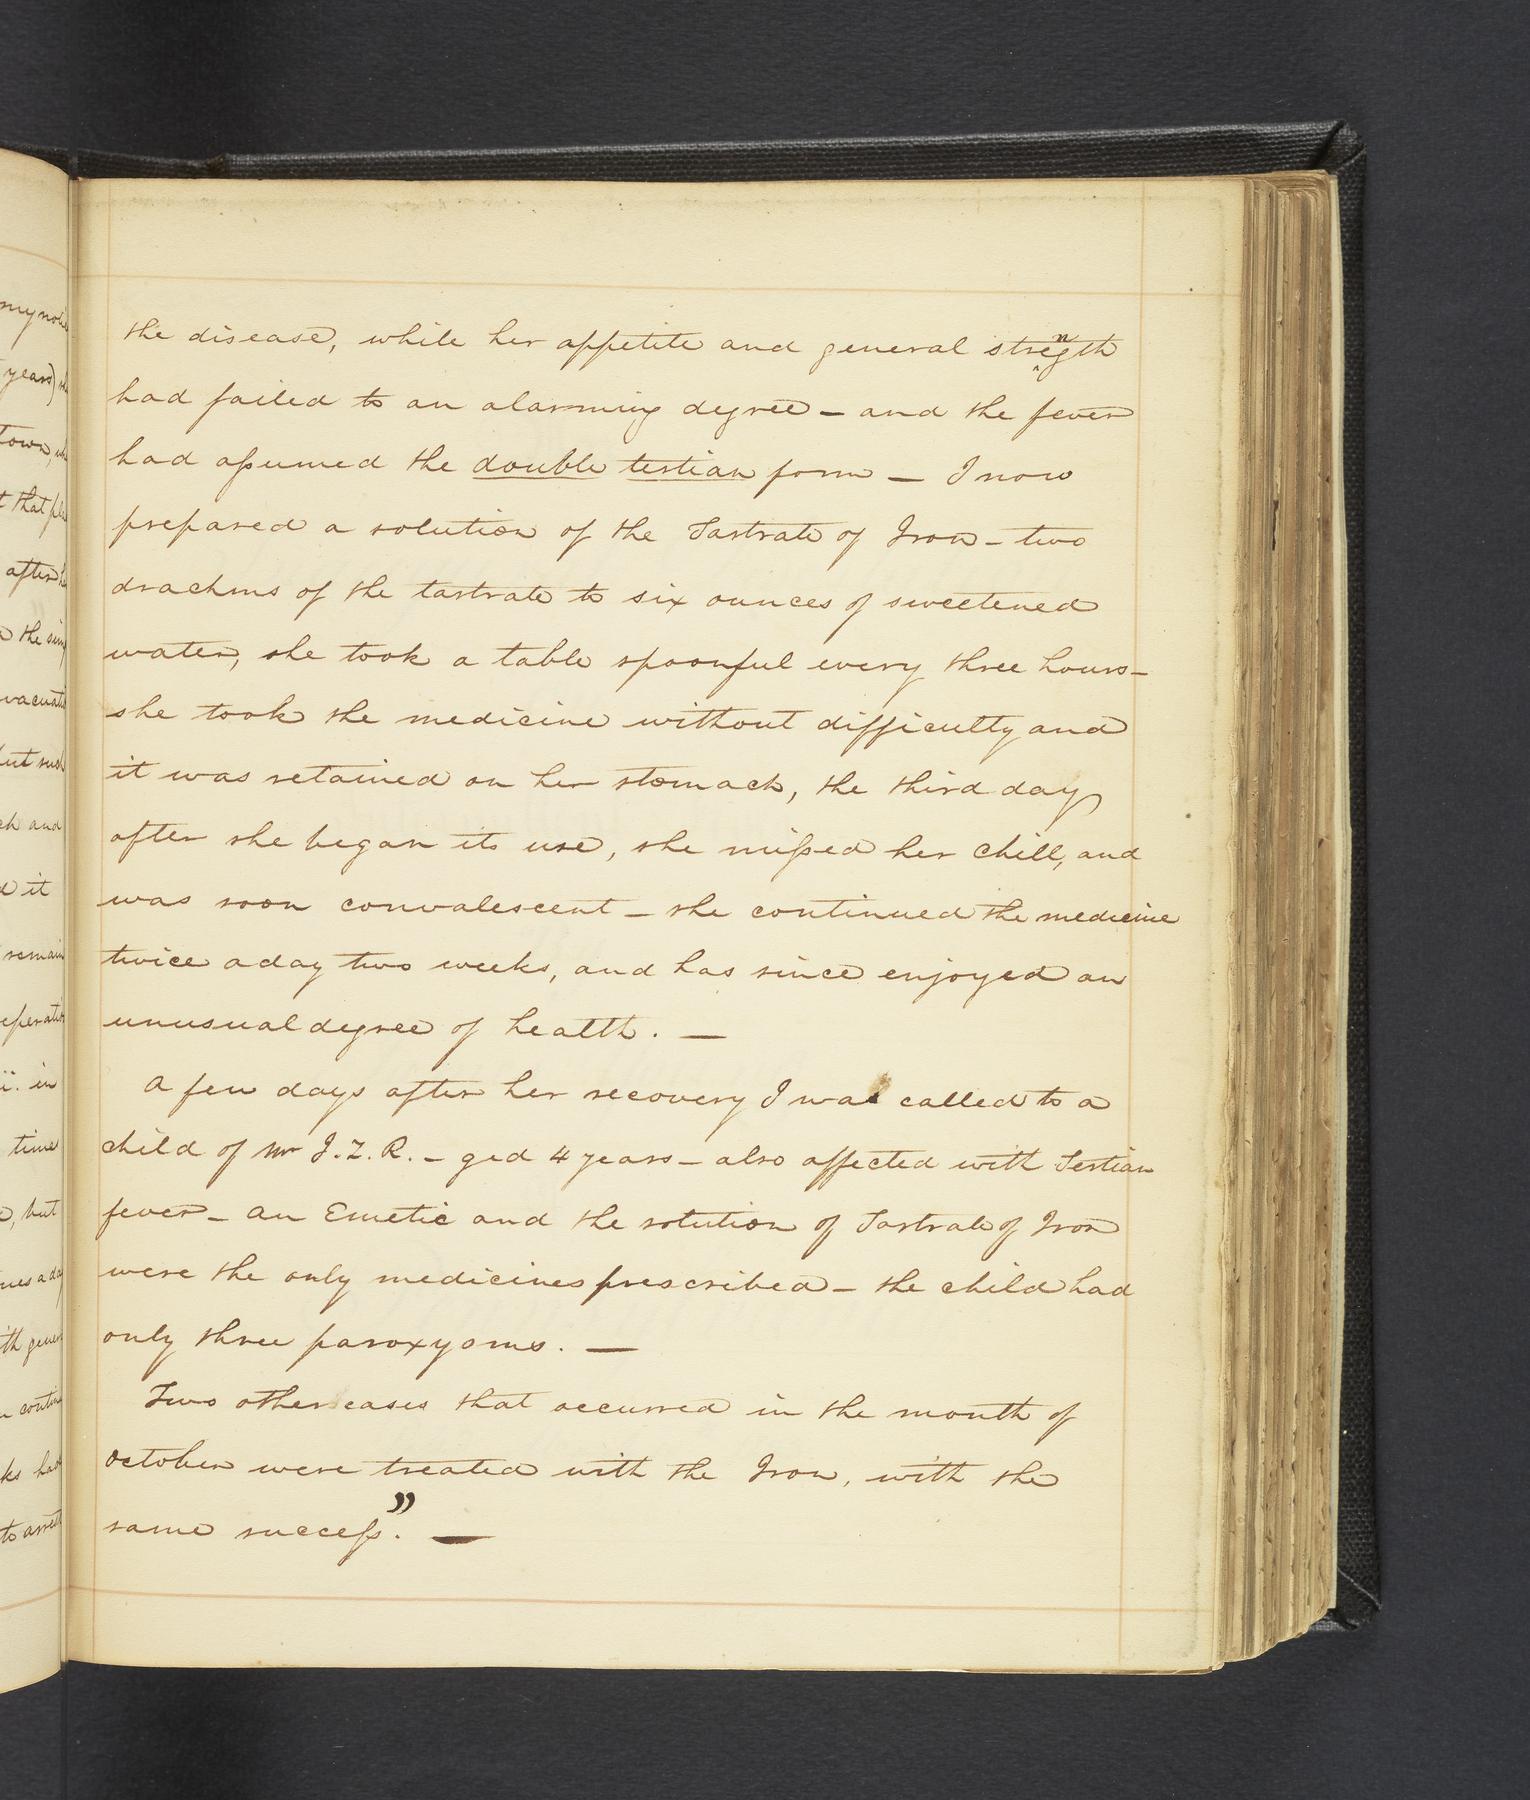 my
years)
town,
that
after
the
but such
and
it
remain
in
time
but
a day
to arrest
the disease, while her appetite and general strength
had failed to an alarming degree — and the fever
had assumed the double tertian form — I now
prepared a solution of the Tartrate of Iron — two
drachms of the tartrate to six ounces of sweetened
water, she took a table spoonful every three hours —
she took the medicine without difficulty and
it was retained on her stomach, the third day
after she began its use, she missed her chill, and
was soon convalescent — she continued the medicine
twice a day two weeks, and has since enjoyed an
unusual degree of health. —
A few days after her recovery I was called to a
child of Mr J. Z. R. — ged 4 years — also affected with Tertian
fever — an Emetic and the solution of Tartrate of Iron
were the only medicines prescribed — the child had
only three paroxysms. —
Two other cases that occurred in the month of
October were treated with the Iron, with the
same success." —